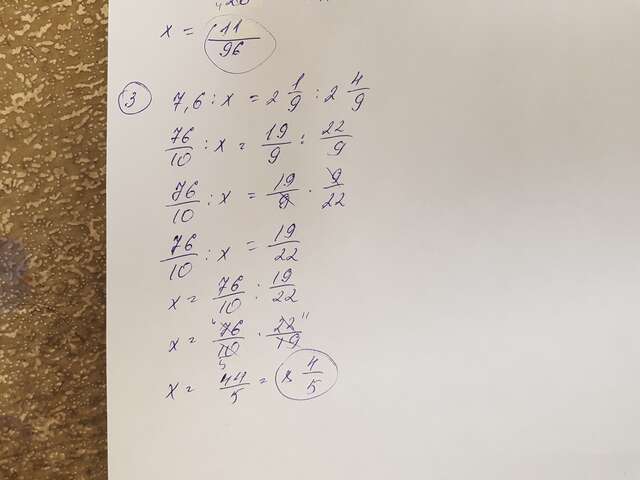 x = 11/96
3
7,6 : x = 2 1/9 : 2 4/9
76/10 : x = 19/9 : 22/9
76/10 : x = 19/9 · 9/22
76/10 : x = 19/22
x = 76/10 : 19/22
x = 76/10 · 22/19
x = 44/5 = 8 4/5